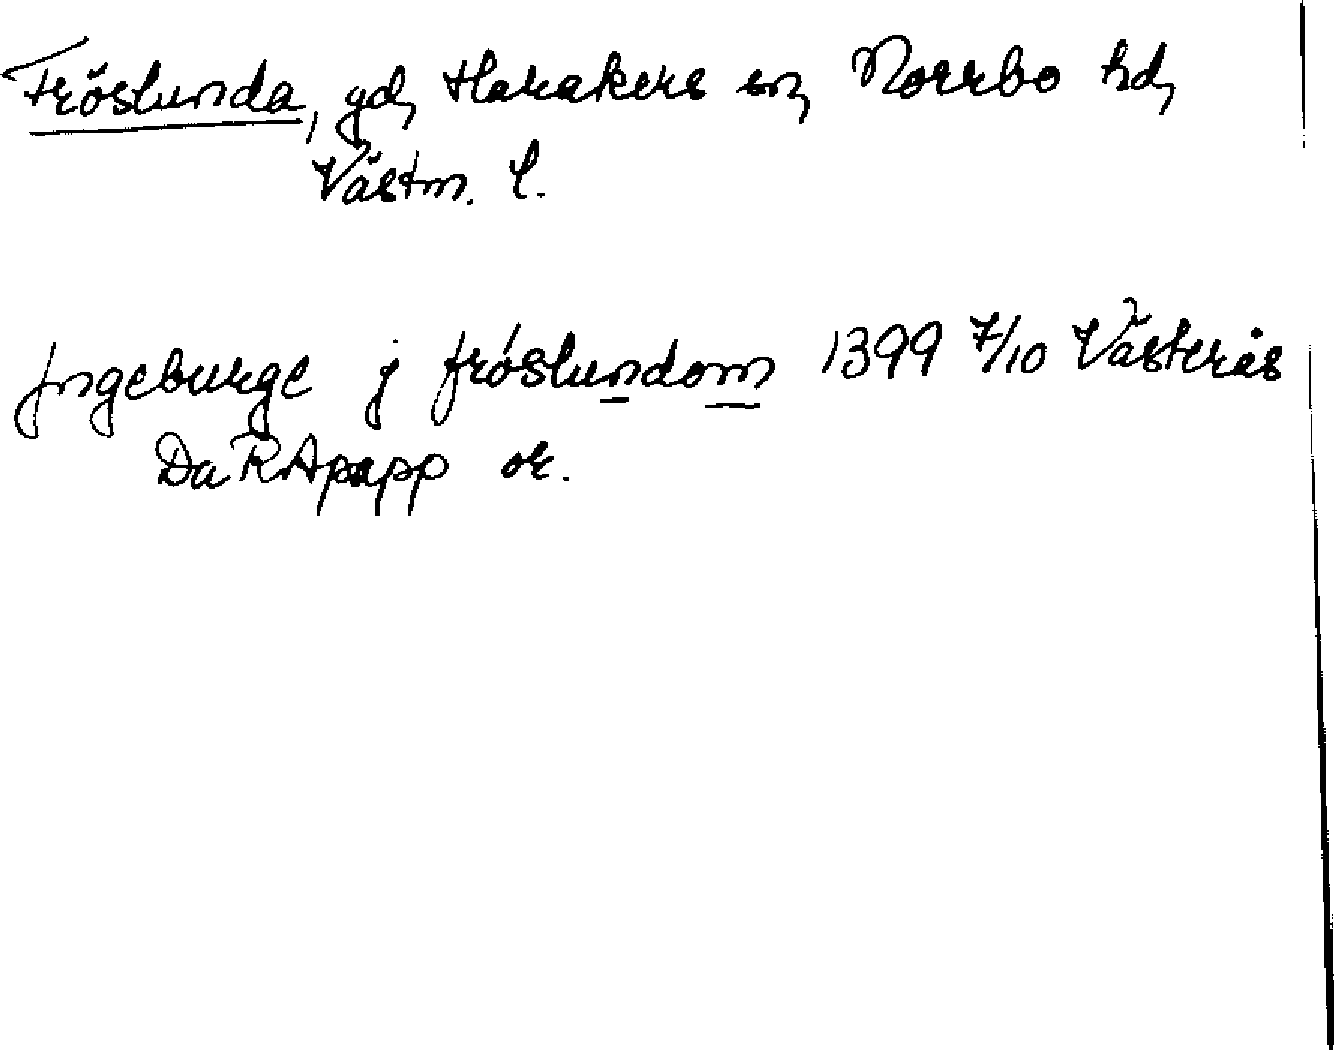 Fröslunda, gd, Harakers sn, Norrbo hd,
Västm. l.
Jngeburge j fróslundom 1399 7/10 Västerås
Da RApapp or.